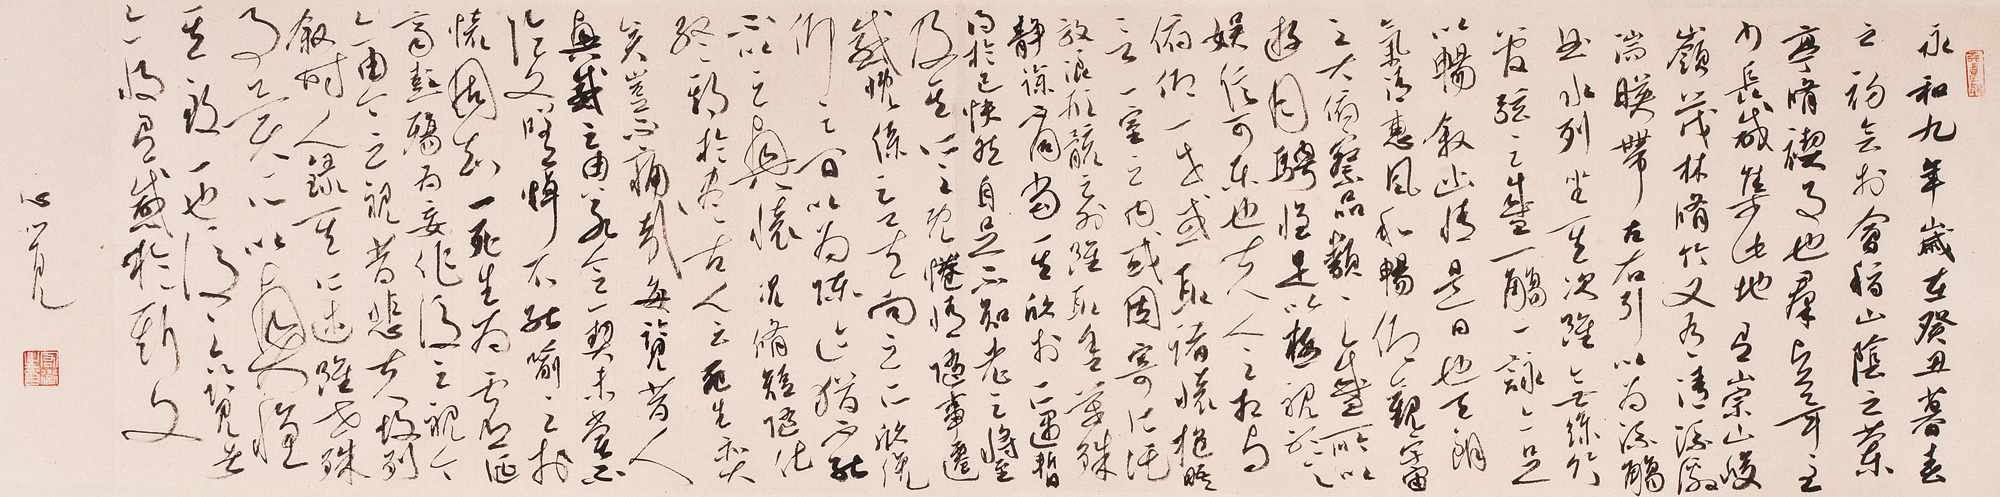 永和九年歲在癸丑暮春
之初會於會稽山陰之蘭
亭脩禊事也羣賢畢至
少長咸集此地有崇山峻
嶺茂林脩竹又有清流激
湍暎帶左右引以為流觴
曲水列坐其次雖無絲竹
管弦之盛一觴一詠亦足
以暢敘幽情是日也天朗
氣清惠風和暢仰觀宇宙
之大俯察品類之盛所以
遊目騁懷足以極視聽之
娛信可樂也夫人之相與
俯仰一世或取諸懷抱晤
言一室之內或因寄所託
放浪形骸之外雖取舍萬殊
靜躁不同當其欣於所遇暫
得於己快然自足不知老之將至
及其所之既惓情隨事遷
感慨係之矣向之所欣俛
仰之間以為陳迹猶不能
不以之興懷況脩短隨化
終期於盡古人云死生亦大
矣豈不痛哉每覽昔人
興感之由若合一契未嘗不
臨文嗟悼不能喻之於
懷固知一死生為虛誕
齊彭殤為妄作後之視今
亦由今之視昔悲夫故列
敘時人錄其所述雖世殊
事異所以興懷
其致一也後之覽者
亦將有感於斯文